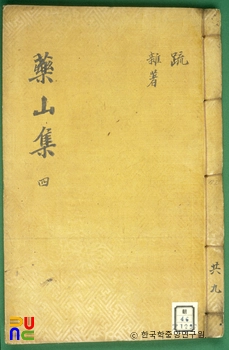 疏
雜著
藥山集
四
共九
© 한국학중앙연구원